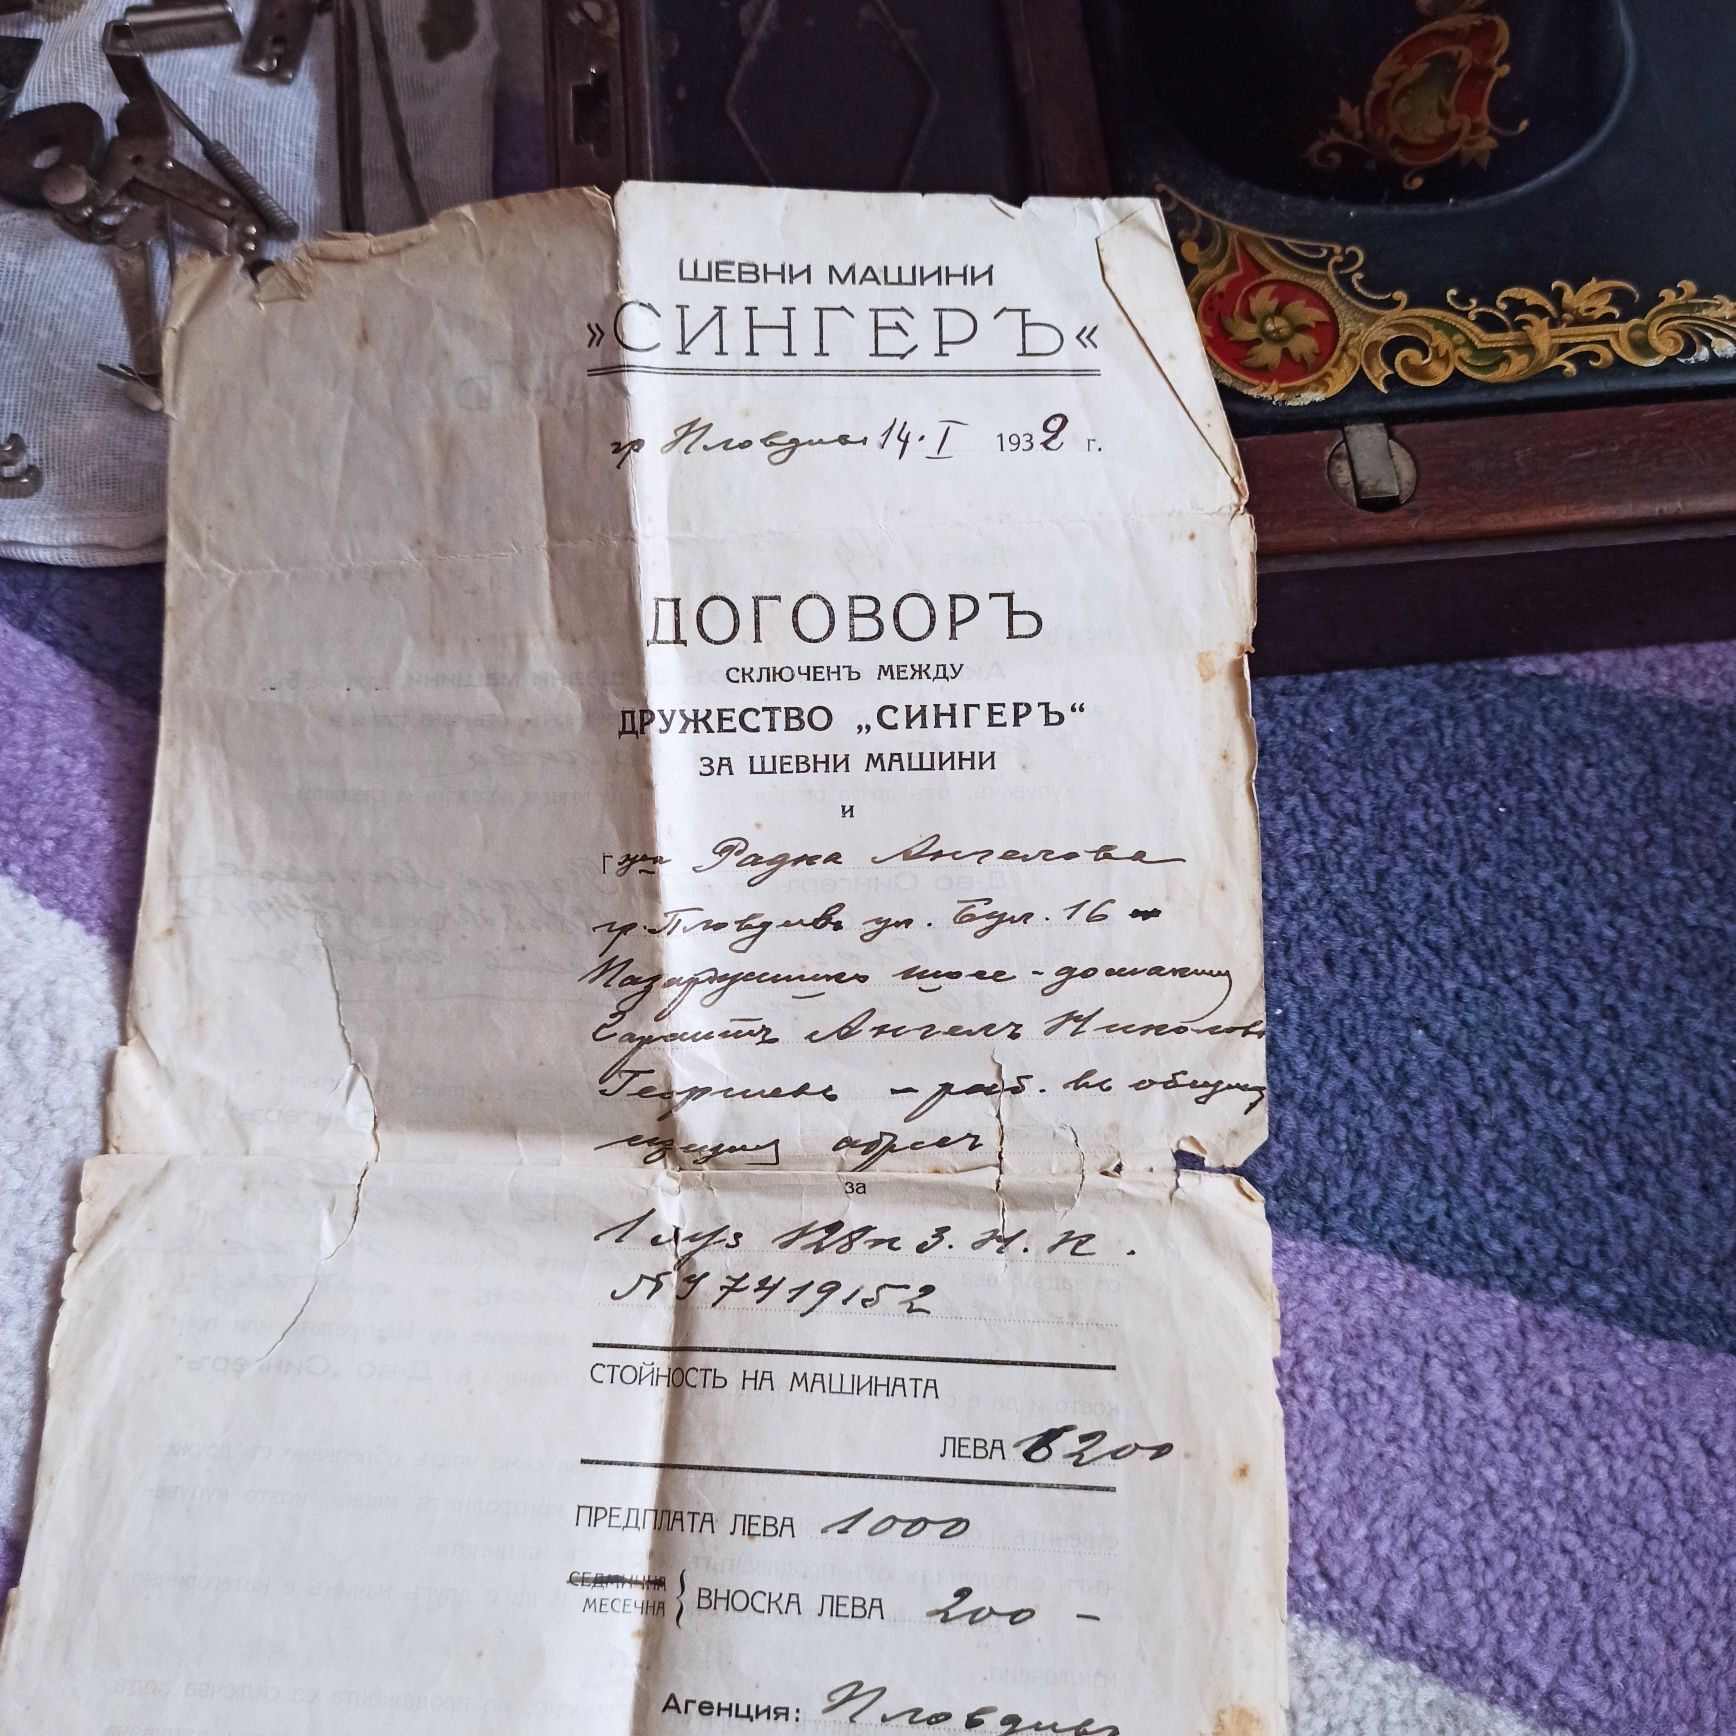 ШЕВНИ МАШИНИ
»СИНГЕРЪ«
гр Пловдивъ 14.I 1932 г.
ДОГОВОРЪ
СКЛЮЧЕНЪ МЕЖДУ
ДРУЖЕСТВО „СИНГЕРЪ“
ЗА ШЕВНИ МАШИНИ
и
Г Радка Ангелова
гр. Пловдивъ ул. Бул. 16
шосе - домакиня
Гарантъ Ангелъ Николовъ
Георгиевъ - раб. въ
адресъ
за
1 128 к 3. Н. К.
№ У 7419152
СТОЙНОСТЬ НА МАШИНАТА
ЛЕВА 6200
ПРЕДПЛАТА ЛЕВА 1000
СЕДМИЧНА
МЕСЕЧНА } ВНОСКА ЛЕВА 200 –
Агенция: Пловдивъ